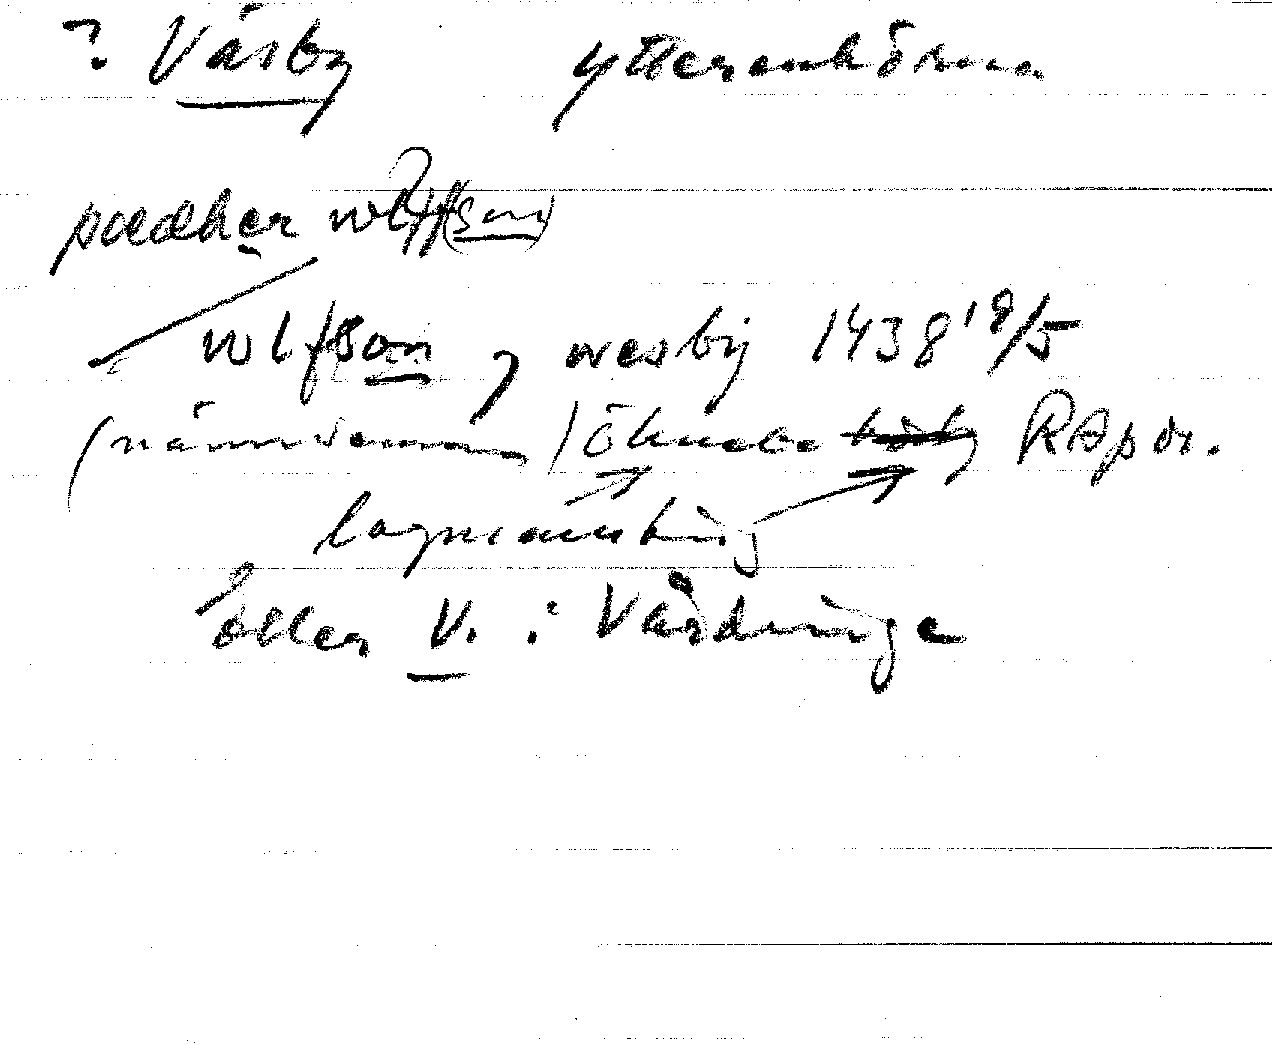 ? Väsby Ytterenhörna
pædher wlff(son)
wlfson j wesby 1438 19/5
(nämndeman) Öknebo RAp or.
lagmansting
eller V. i Vårdinge